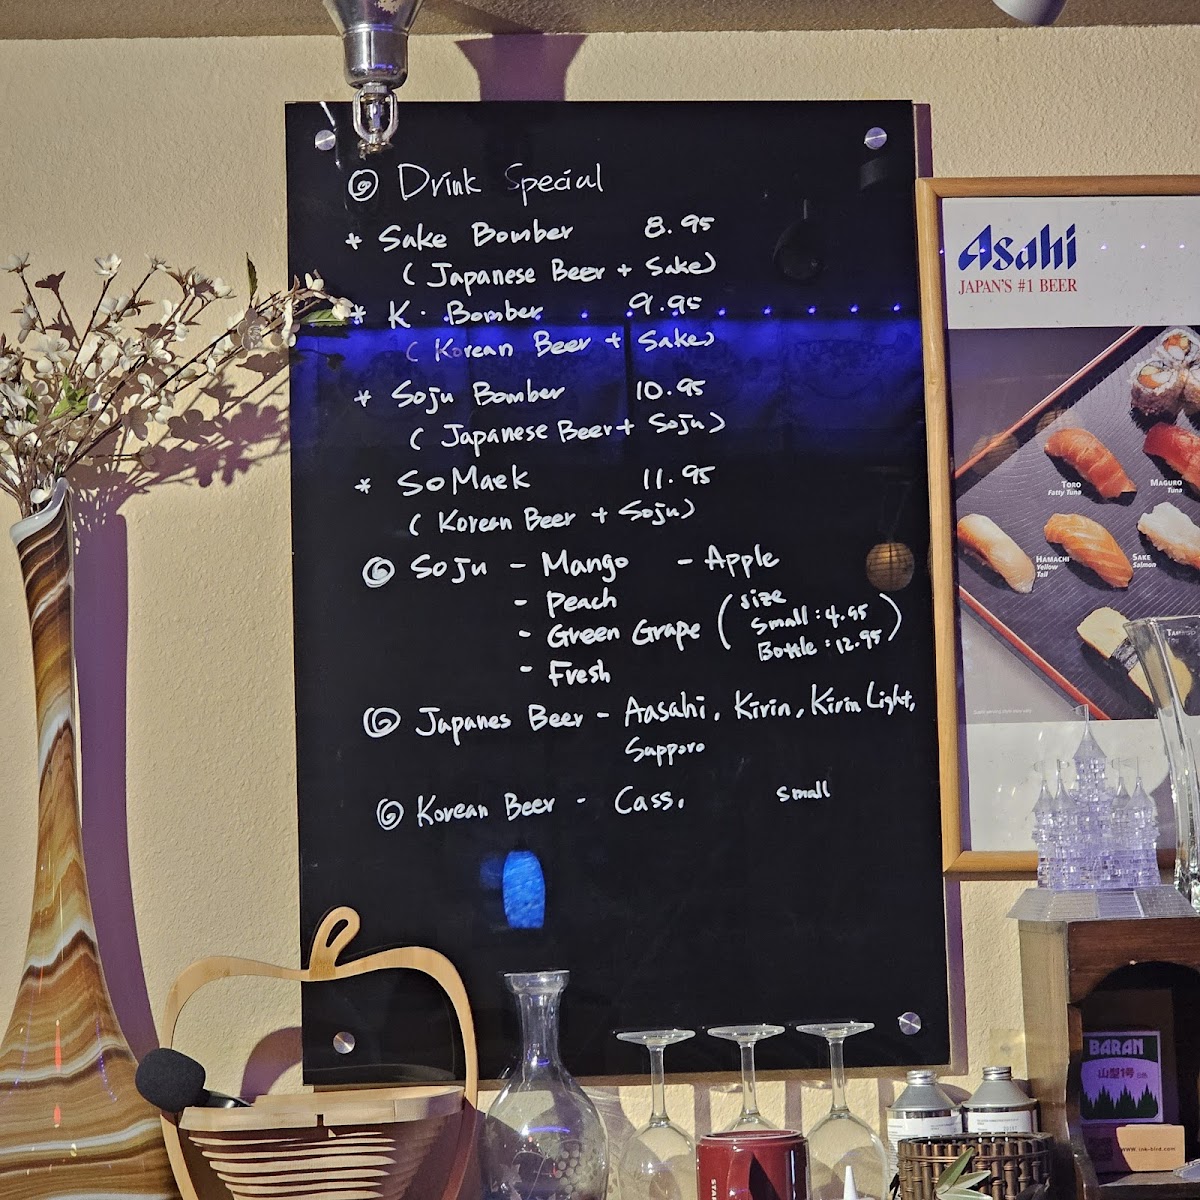 Drink Special
* Sake Bomber 8.95
(Japanese Beer + Sake)
* K. Bomber 9.95
(Korean Beer + Sake)
* Soju Bomber 10.95
(Japanese Beer + Soju)
* SoMaek 11.95
(Korean Beer + Soju)
Soju - Mango - Apple
- Peach
- Green Grape (size
small: 4.95
Bottle: 12.95)
- Fresh
Japanes Beer - Aasahi, Kirin, Kirin Light,
Sapporo
Korean Beer - Cass, small
Asahi
JAPAN'S #1 BEER
TORO
Fatty Tuna
MAGURO
Tuna
HAMACHI
Yellow
Tail
SAKE
Salmon
BARAN
www.ink-bird.com